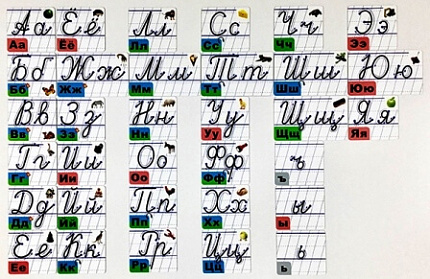 Аа Ёё Лл Сс Чч Ээ
Аа Ёё Лл Сс Чч Ээ
Бб Жж Мм Тт Шш Юю
Бб Жж Мм Тт Шш Юю
Вв Зз Нн Уу Щщ Яя
Вв Зз Нн Уу Щщ Яя
Гг Ии Оо Фф ъ
Гг Ии Оо Фф ъ
Дд Йй Пп Хх ы
Дд Йй Пп Хх ы
Ее Кк Рр Цц ь
Ее Кк Рр Цц ь